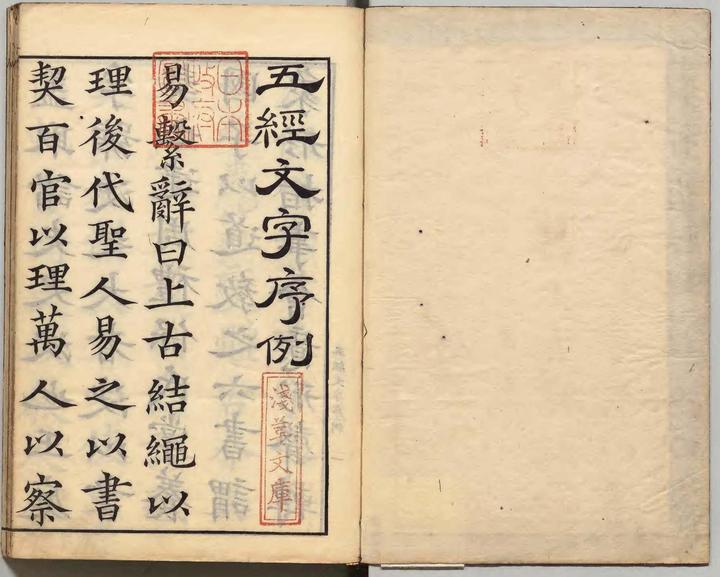 五經文字序例
易繫辭曰上古結繩以
理後代聖人易之以書
契百官以理萬人以察
淺草文庫